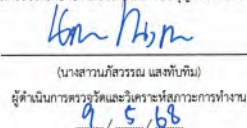 (นางสาวนภัสวรรณ แสงทับทิม)
ผู้ดำเนินการตรวจวัดและวิเคราะห์สภาวะการทำงาน
9 / 5 / 68